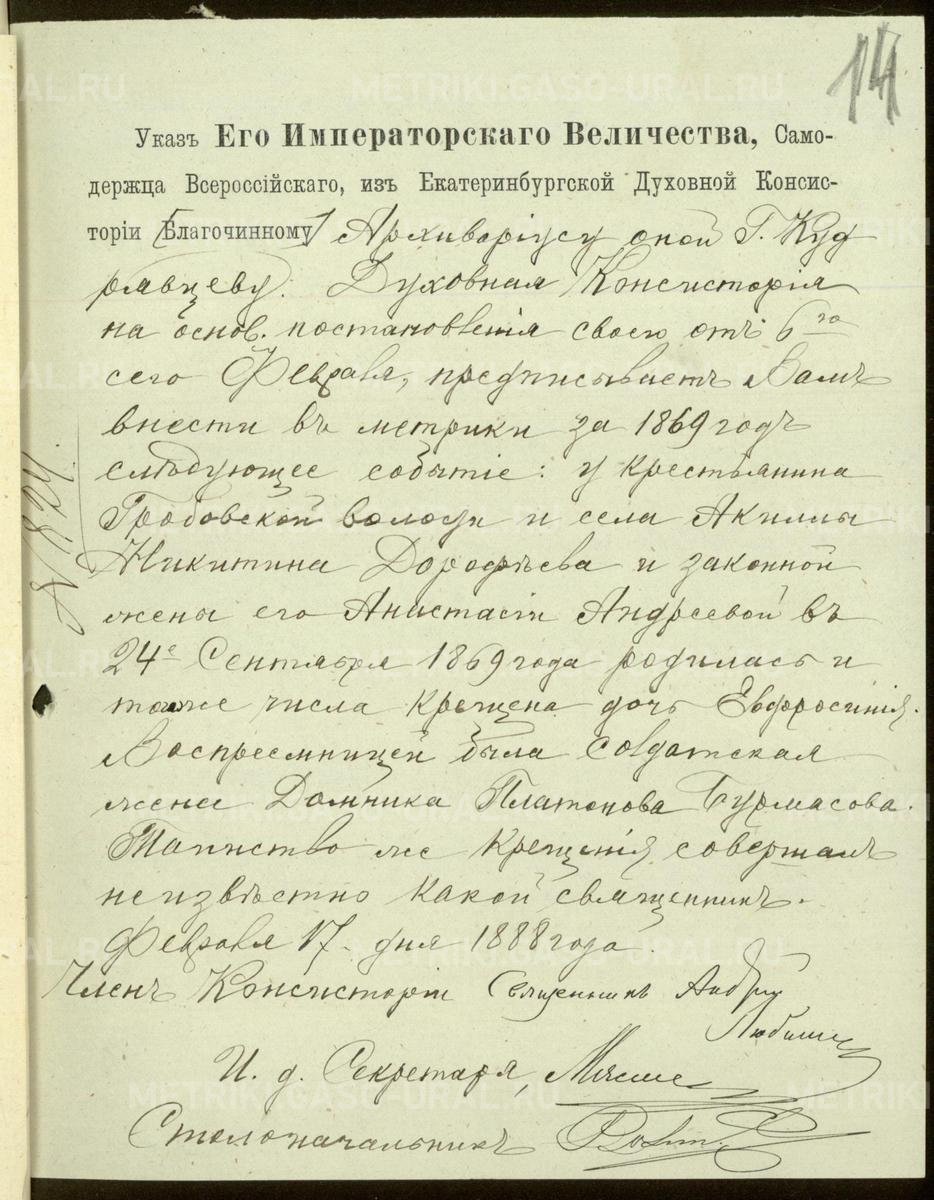 14
Указъ Его Императорскаго Величества, Само-
держца Всероссійскаго, изъ Екатеринбургской Духовной Консис-
торіи [Благочинному] Архиваріусу оной Г. Куд
рявцеву. Духовная Консисторія
на основ. постановленія своего отъ 6го
сего Февраля, предписываетъ Вамъ
внести въ метрики за 1869 годъ
слѣдующее событіе: у крестьянина
Гробовской волости и села Акиллы
Никитина Дорофѣева и законной
жены его Анистасіи Андреевой въ
24е Сентября 1869 года родилась и
тогоже числа крещена дочь Евфросинія.
Воспреемницей была солдатская
жена Домника Платонова Бурмасова.
Таинство же крещенія совершалъ
неизвѣстно какой священникъ.
Февраля 17 дня 1888 года
Членъ Консисторіи Священникъ Андрей
И. д. Секретаря,
Столоначальникъ
№ 1824.
METRIKI.GASO-URAL.RU